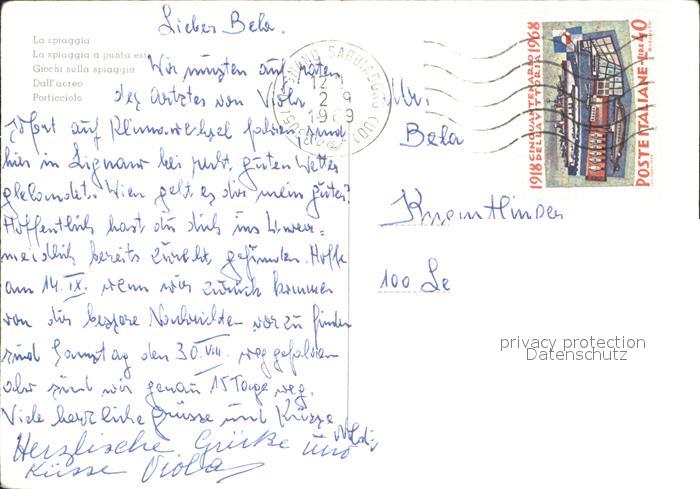 Lieber Bela.
La spiaggia
La spiaggia a punta est
Giochi sulla spiaggia
Dall'aereo
Porticciolo
Wir mussten auf raten
des Arztes von Viola
sofort auf Klimawechsel fahren, sind
hier in Lignano bei sehr guten Wetter
gelandet. Wien geht es dir mein guter?
Hoffentlich hast du dich ins Unver=
meidlich bereits zurecht gefunden. Hoffe
am 14. IX. wenn wir zurück kommen
von dir bessere Nachrichten vor zu finden
sind Samstag den 30. VIII. weg gefahren
also sind wir genau 15 Tage weg.
Viele herzliche Grüsse und Küsse
Herzlische Grüße und
Küsse Viola
LIGNANO SABBIADORO (UD)
12
2 9
1969
1918 CINQUANTENARIO 1968
DELLA VITTORIA
POSTE ITALIANE L. 40
Mr.
Bela
100 Le
privacy protection
Datenschutz